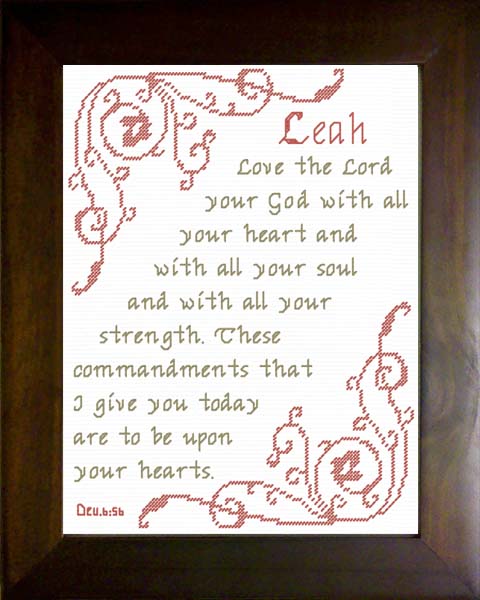 Leah
Love the Lord
your God with all
your heart and
with all your soul
and with all your
strength. These
commandments that
I give you today
are to be upon
your hearts.
Deu.6:56